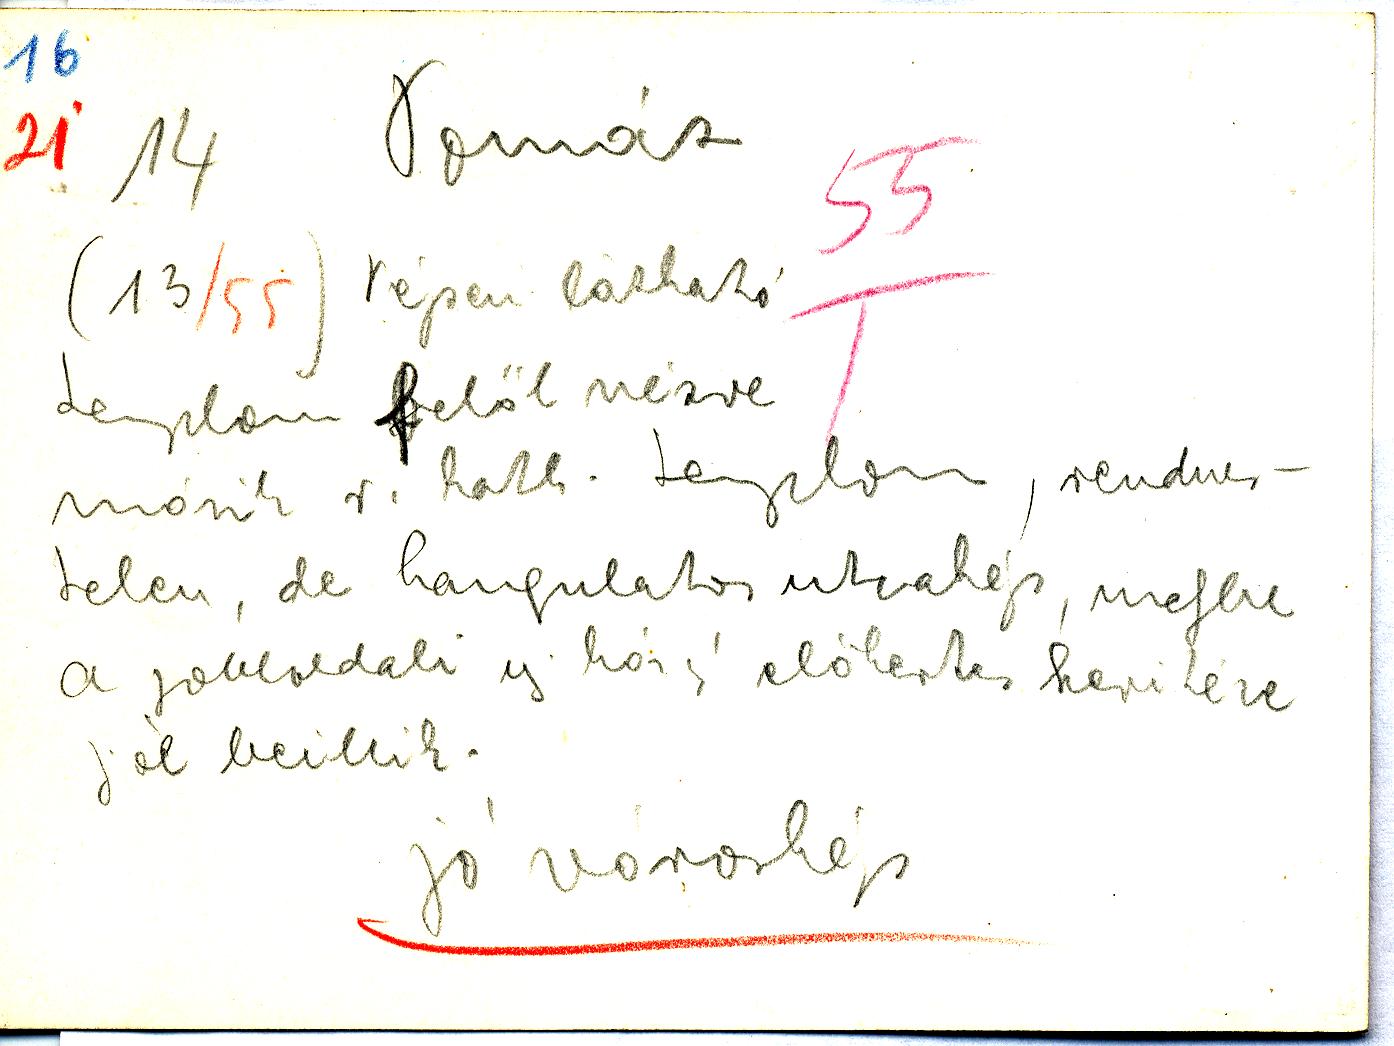 16
21 14 Pomáz
55
(13/55) képen látható
T
templom felől nézve
másik r. kath. templom, rendez-
telen, de hangulatos utcakép, melybe
a jobboldali uj ház előkertes keritése
jól beillik.
jó városkép